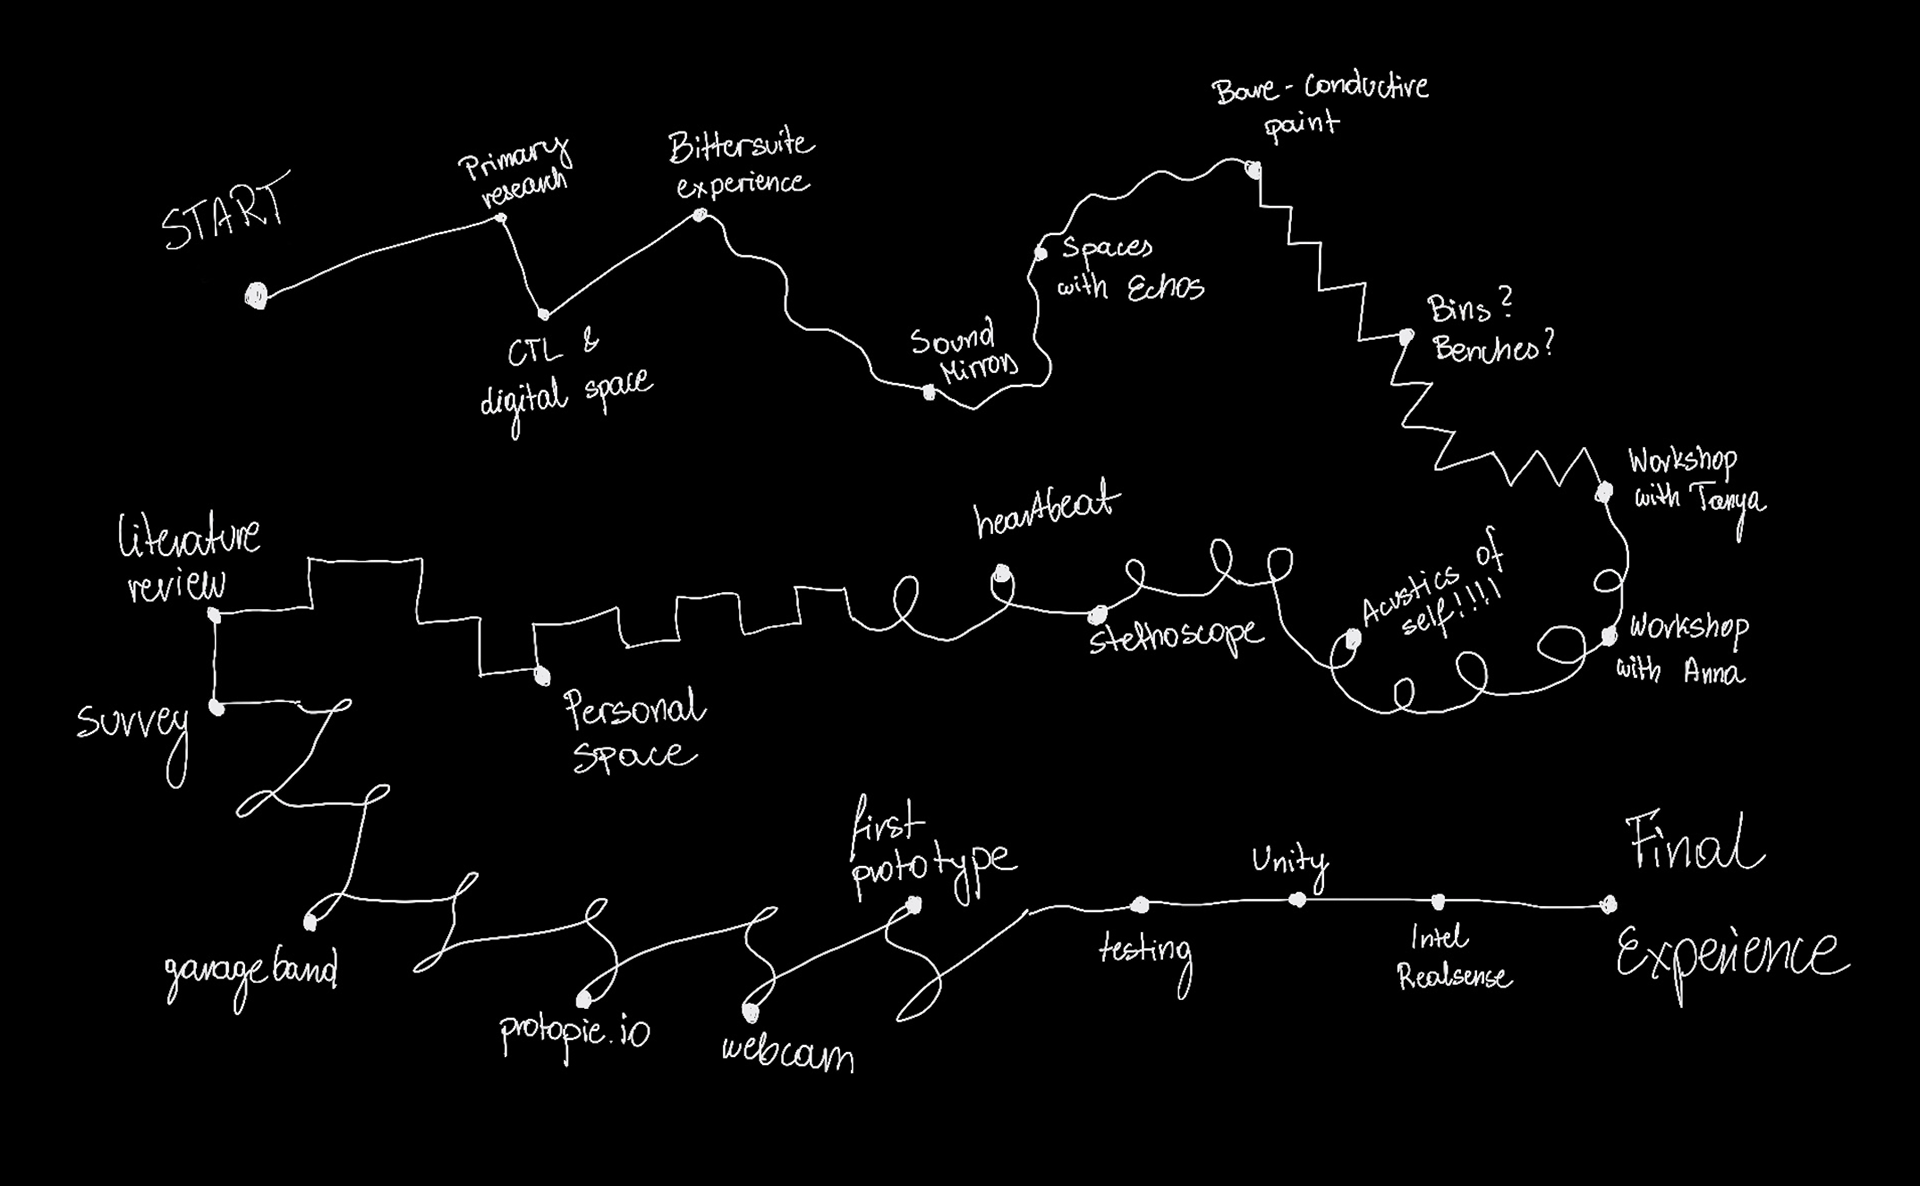 START
Primary
research
CTL &
digital space
Bittersuite
experience
Sound
Mirrors
Spaces
with Echos
Bare-Conductive
paint
Bins?
Benches?
Workshop
with Tanya
Workshop
with Anna
Acustics of
self!!!!
stethoscope
heartbeat
Personal
space
literature
review
survey
garageband
protopie.io
webcam
first
prototype
testing
Unity
Intel
Realsense
Final
Experience